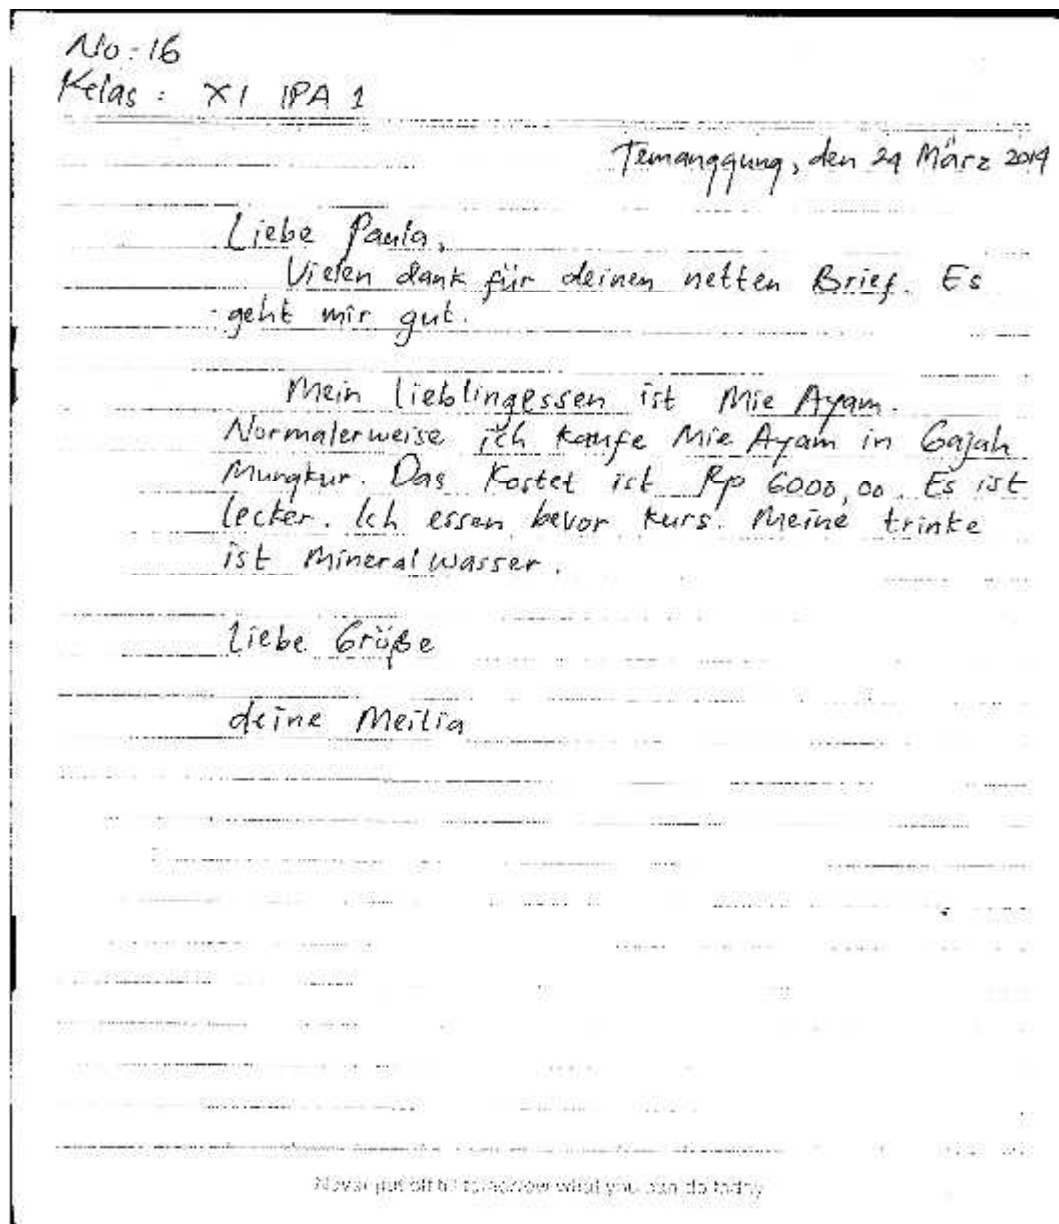 No : 16
Kelas : XI IPA 1
Temanggung, den 29 März 2014
Liebe Paula,
Vielen dank für deinen netten Brief. Es
geht mir gut.
Mein lieblingessen ist Mie Ayam.
Normalerweise ich kaufe Mie Ayam in Gajah
Mungkur. Das Kostet ist Rp 6000,00. Es ist
lecker. Ich essen bevor kurs. Meine trinke
ist Mineralwasser.
Liebe Größe
deine Meilia
Never put off till tomorrow what you can do today